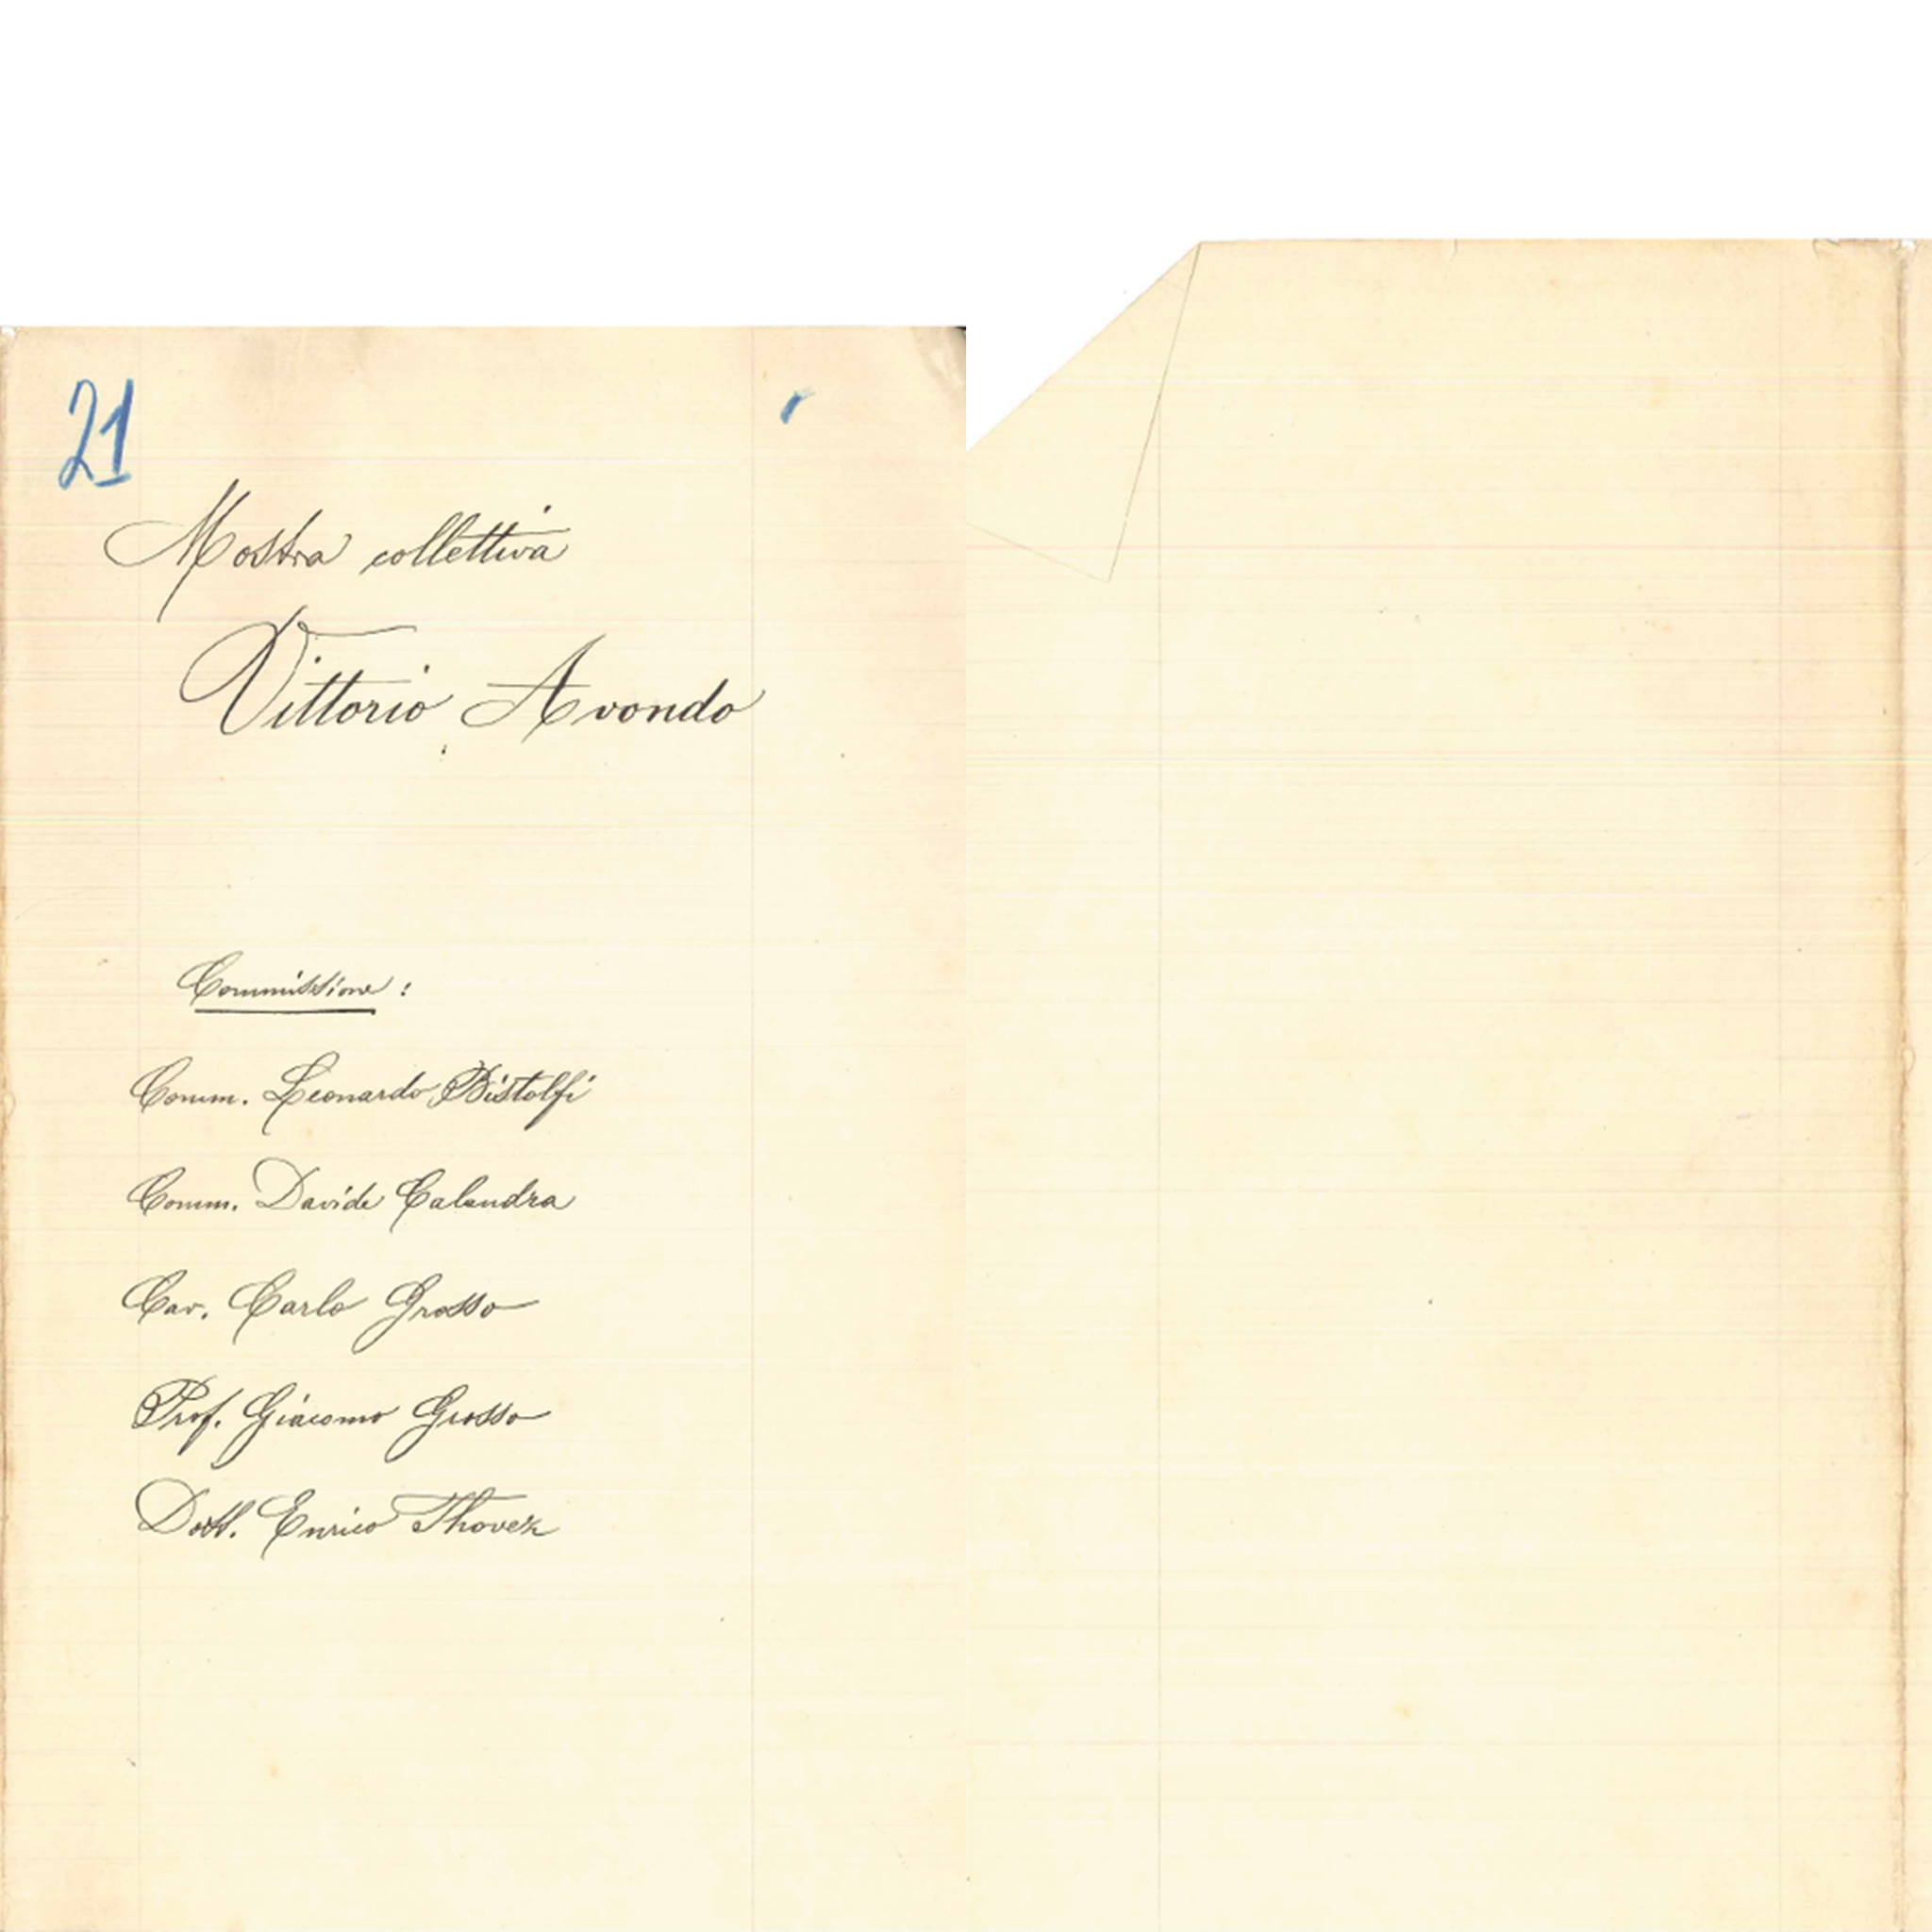 21
Mostra collettiva
Vittorio Avondo
Commissione :
Comm. Leonardo Bistolfi
Comm. Davide Calandra
Cav. Carlo Grosso
Prof. Giacomo Grosso
Dott. Enrico Thovez